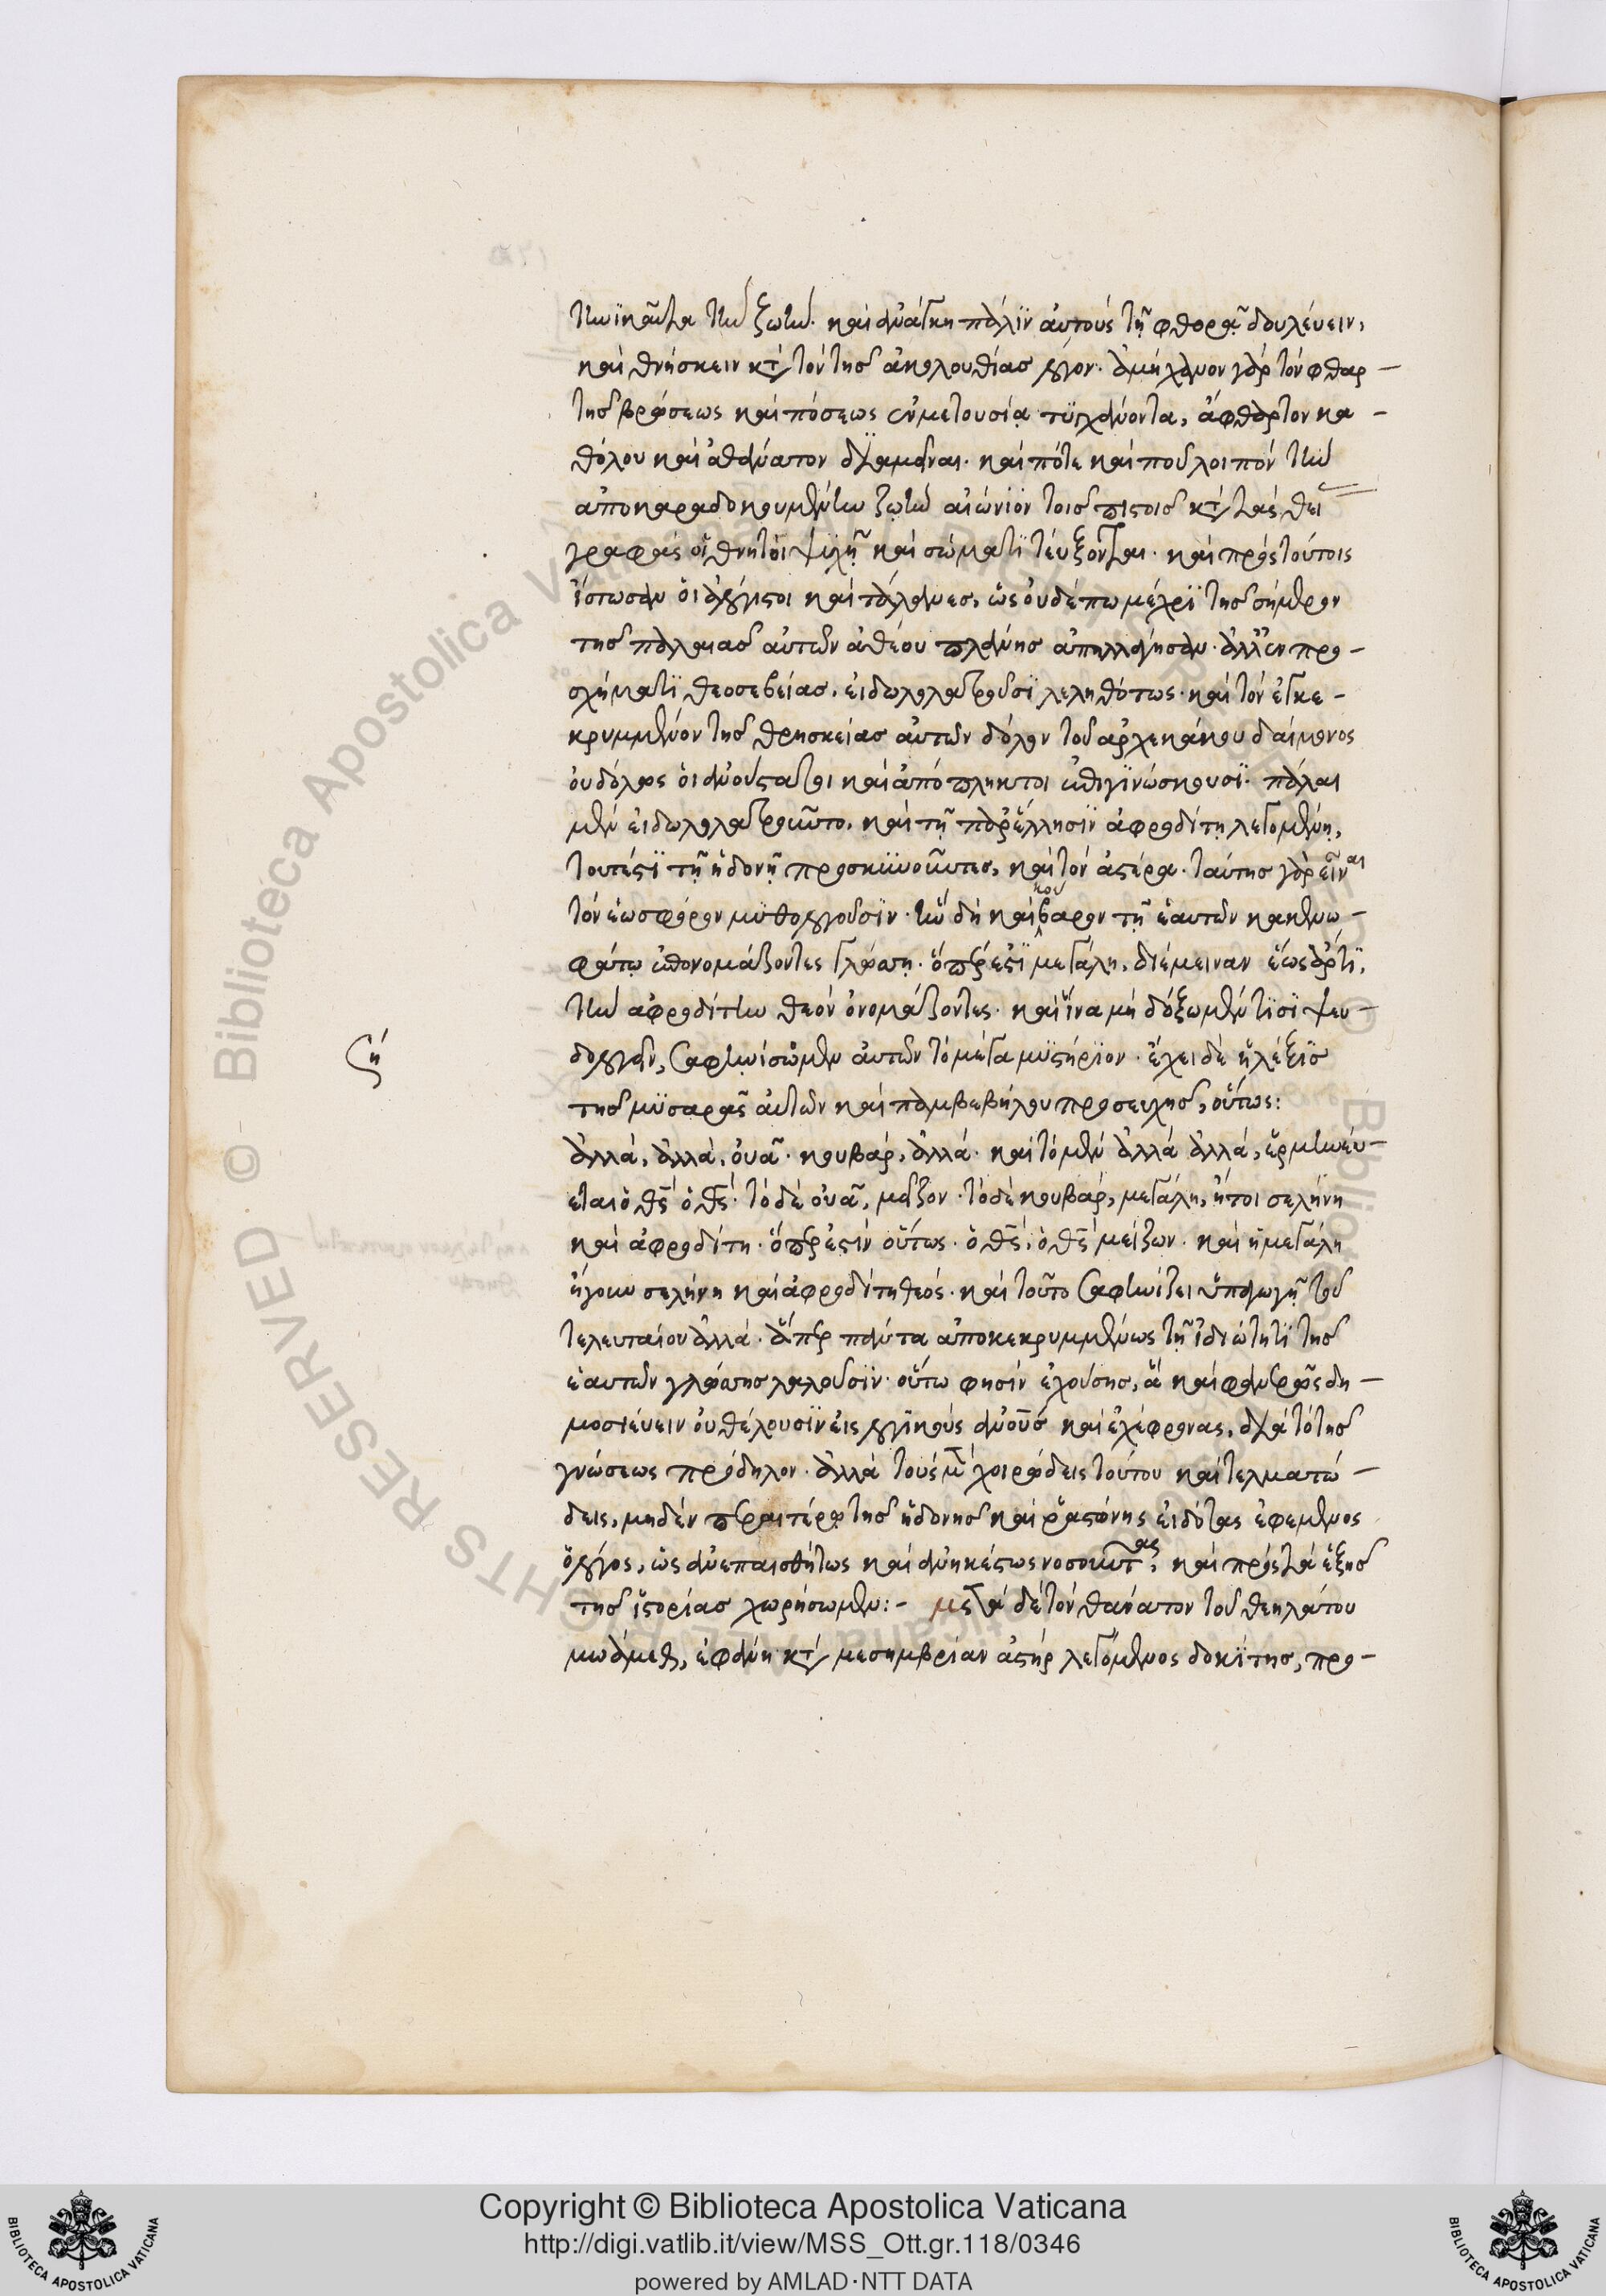 τηνικαῦτα τὴν ζωὴν. καὶ ἀνάγκη πάλϊν ἀυτοὺς τῇ φθορᾷ δουλέυειν,
καὶ θνήσκειν κατὰ τὸν τῆς ἀκολουθίας λόγον. ἀμήχανον γὰρ τὸν φθαρ-
τῆς βρώσεως καὶ πόσεως ἐν μετουσίᾳ τϋγχάνοντα, ἄφθαρτον κα-
θόλου καὶ ἀθάνατον διαμεῖναι. καὶ πότε καὶ ποῦ λοιπὸν τὴν
ἀποκαραδοκουμένην ζωὴν αἰώνιον τοῖς πιστοῖς κατὰ τὰς θεί
γραφὰς οἱ θνητοὶ ψϋχῇ καὶ σώματϊ τέυξονται. καὶ πρὸς τούτοις
ἴστωσαν ὁι ἀλόγιστοι καὶ τάλανες, ὡς ὀυδέπω μέχρϊ τῆς σήμερον
τῆς παλαιᾶς ἀυτῶν ἀθέου πλάνης ἀπηλλάγησαν. ἀλλ' ἐν προ-
σχήματϊ θεοσεβείας, ἐιδωλολατροῦσϊ λεληθότως. καὶ τὸν ἐγκε-
κρυμμένον τῆς θρησκείας ἀυτῶν δόλον τοῦ ἀρχεκάκου δαίμονος
ὀυδόλως ὁι ἀνούστατοι καὶ ἀπόπληκτοι ἐπιγϊνώσκουσϊ. πάλαι
μὲν ἐιδωλολατροῦντο, καὶ τῇ παρ' ἕλλησϊν ἀφροδίτῃ λεγομένῃ,
τουτέστϊ τῇ ἡδονῇ προσκϋνοῦντες, καὶ τὸν ἀστέρα. ταύτης γὰρ εἶναι
τὸν ἑωσφόρον μϋθολογοῦσϊν. ἣν δὴ καὶ κουβαρον τῇ ἑαυτῶν κακεμφω-
φάτῳ ἐπονομάζοντες γλώττῃ. ὅπερ ἐστϊ μεγάλη, διέμειναν ἕως ἄρτϊ,
τὴν ἀφροδίτην θεὸν ὀνομάζοντες. καὶ ἵνα μὴ δόξωμεν τϊσϊ ψευ-
δολογεῖν, σαφηνίσωμεν ἀυτῶν τὸ μέγα μϋστήρϊον. ἔχει δὲ ἡ λέξϊς
τῆς μϋσαρᾶς ἀυτῶν καὶ παμβεβήλου προσευχῆς, οὕτως:
ἀλλὰ, ἀλλὰ, ὀυᾶ. κουβὰρ, ἀλλά. καὶ τὸ μὲν ἀλλὰ ἀλλὰ, ἑρμηνέυ-
εται ὁ θσ ὁ θσ. τὸ δὲ ὀυᾶ, μεῖζον. τὸ δὲ κουβὰρ, μεγάλη, ἤτοι σελήνη
καὶ ἀφροδίτη. ὅπερ ἐστὶν οὕτως. ὁ θσ, ὁ θσ μείζων. καὶ ἡ μεγάλη
ἤγουν σελήνη καὶ ἀφροδίτη θεός. καὶ τοῦτο σαφηνίζει ὑπαγωγῇ τοῦ
τελευταίου ἀλλά. ἅπερ πάντα ἀποκεκρυμμένως τῇ ἰδιώτητϊ τῆς
ἑαυτῶν γλώττης λαλοῦσϊν. οὕτω φησὶν ἐχούσης, ἃ καὶ φανερῶς δη-
μοσιέυειν ὀυ θέλουσϊν ἐις λογϊκοὺς ἄνους καὶ ἐχέφρονας, διὰ τὸ τῆς
γνώσεως πρόδηλον. ἀλλὰ τοὺς μετὰ χοιρώδεις τούτου καὶ τελματώ-
δεις, μηδὲν περαιτέρω τῆς ἡδονῆς καὶ ῥαστώνης ἐιδότας ἐφέμενος
ὁ λόγος, ὡς ἀνεπαισθήτως καὶ ἀνηκέστως νοσοῦντας, καὶ πρὸς τὰ ἑξῆς
τῆς ἱστορίας χωρήσωμεν:- μετὰ δὲ τὸν θάνατον τοῦ θεηλάτου
μωάμεθ, ἐφάνη κατὰ μεσημβρίαν ἀστὴρ λεγόμενος δοκίτης, προ-
ση
Copyright © Biblioteca Apostolica Vaticana
http://digi.vatlib.it/view/MSS_Ott.gr.118/0346
powered by AMLAD·NTT DATA